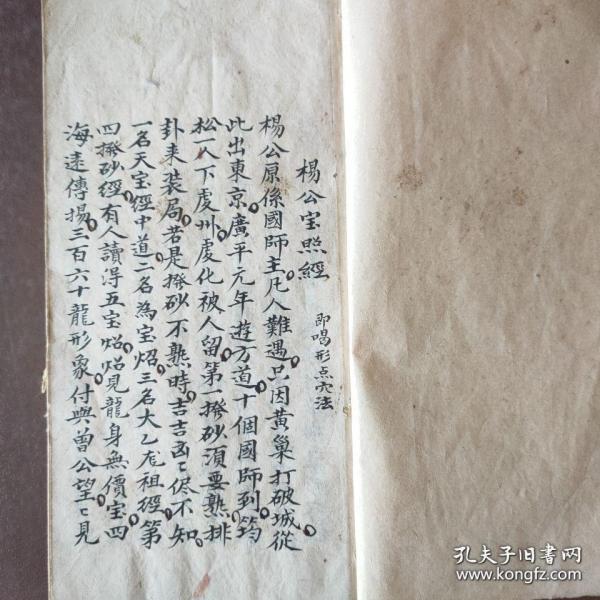 楊公宝照經
即喝形点穴法
楊公原係國師主凡人難遇只因黄巢打破城從
此出東京廣平元年遊方道十個國師到筠
松一人下虔州虔化被人留第一撥砂須要熟排
卦来裝局若是撥砂不熟時吉吉凶〻侭不知
一名天宝經中道二名為宝炤三名大乙尨祖經第
四撥砂經有人讀得五宝炤炤見龍身無價宝四
海遠傳揚三百六十龍形象付與曾公望〻見
孔夫子旧书网
www.kongfz.com